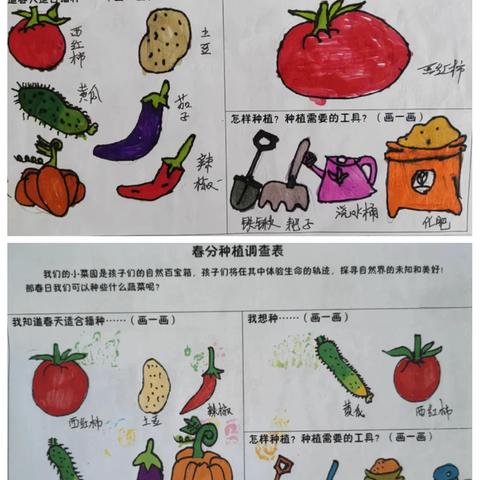 道春天适合播种……（画一画）
西红柿
土豆
黄瓜
茄子
辣椒
西红柿
怎样种植？种植需要的工具？（画一画）
铁锹
耙子
浇水桶
化肥
春分种植调查表
我们的小菜园是孩子们的自然百宝箱，孩子们将在其中体验生命的轨迹，探寻自然界的未知和美好！
那春日我们可以种些什么蔬菜呢？
我知道春天适合播种……（画一画）
我想种……（画一画）
西红柿
土豆
辣椒
黄瓜
西红柿
怎样种植？种植需要的工具？（画一画）